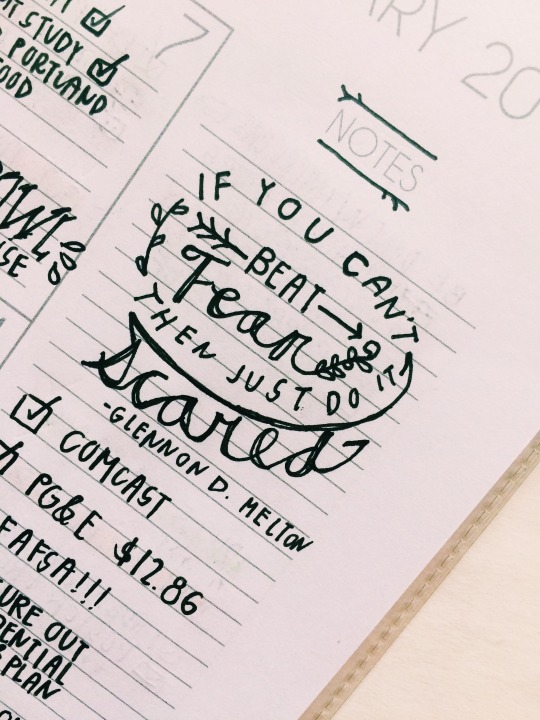 STUDY
PORTLAND
7
ARY 20
NOTES
IF YOU CAN'T
BEAT
Fear
THEN JUST DO IT
scared
-GLENNON D. MELTON
COMCAST
PG&E $12.86
FAFSA!!!
OUT
PLAN